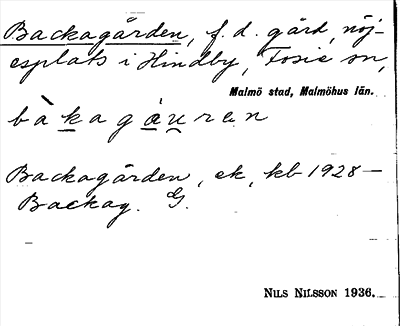 Backagården, f. d. gård, nöj-
esplats i Hindby, Fosie sn,
Malmö stad, Malmöhus län.
bàkagáuren
Backagården, ek, kb 1928 —
Backag. G.
NILS NILSSON 1936.